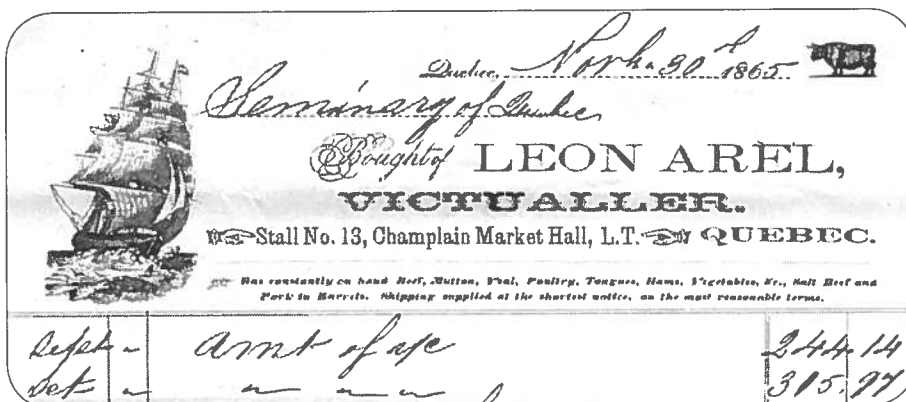 Quebec, Novbr 30th 1865
Seminary of Quebec
Bought of LEON AREL,
VICTUALLER.
Stall No. 13, Champlain Market Hall, L.T. QUEBEC.
Has constantly on hand Beef, Mutton, Veal, Poultry, Tongues, Hams, Vegetables, &c., Salt Beef and
Pork in Barrels. Shipping supplied at the shortest notice, on the most reasonable terms.
Sept " Amt of a/c 244.14
Oct " " " " 315.97